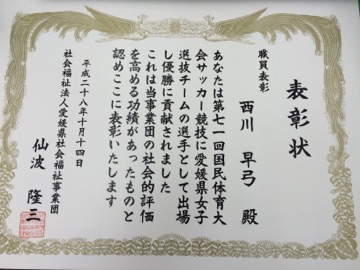 表彰状
職員表彰
西川早弓殿
あなたは第七一回国民体育大
会サッカー競技に愛媛県女子
選抜チームの選手として出場
し優勝に貢献されました
これは当事業団の社会的評価
を高める功績があったものと
認めここに表彰いたします
平成二十八年十月十四日
社会福祉法人愛媛県社会福祉事業団
仙波隆三